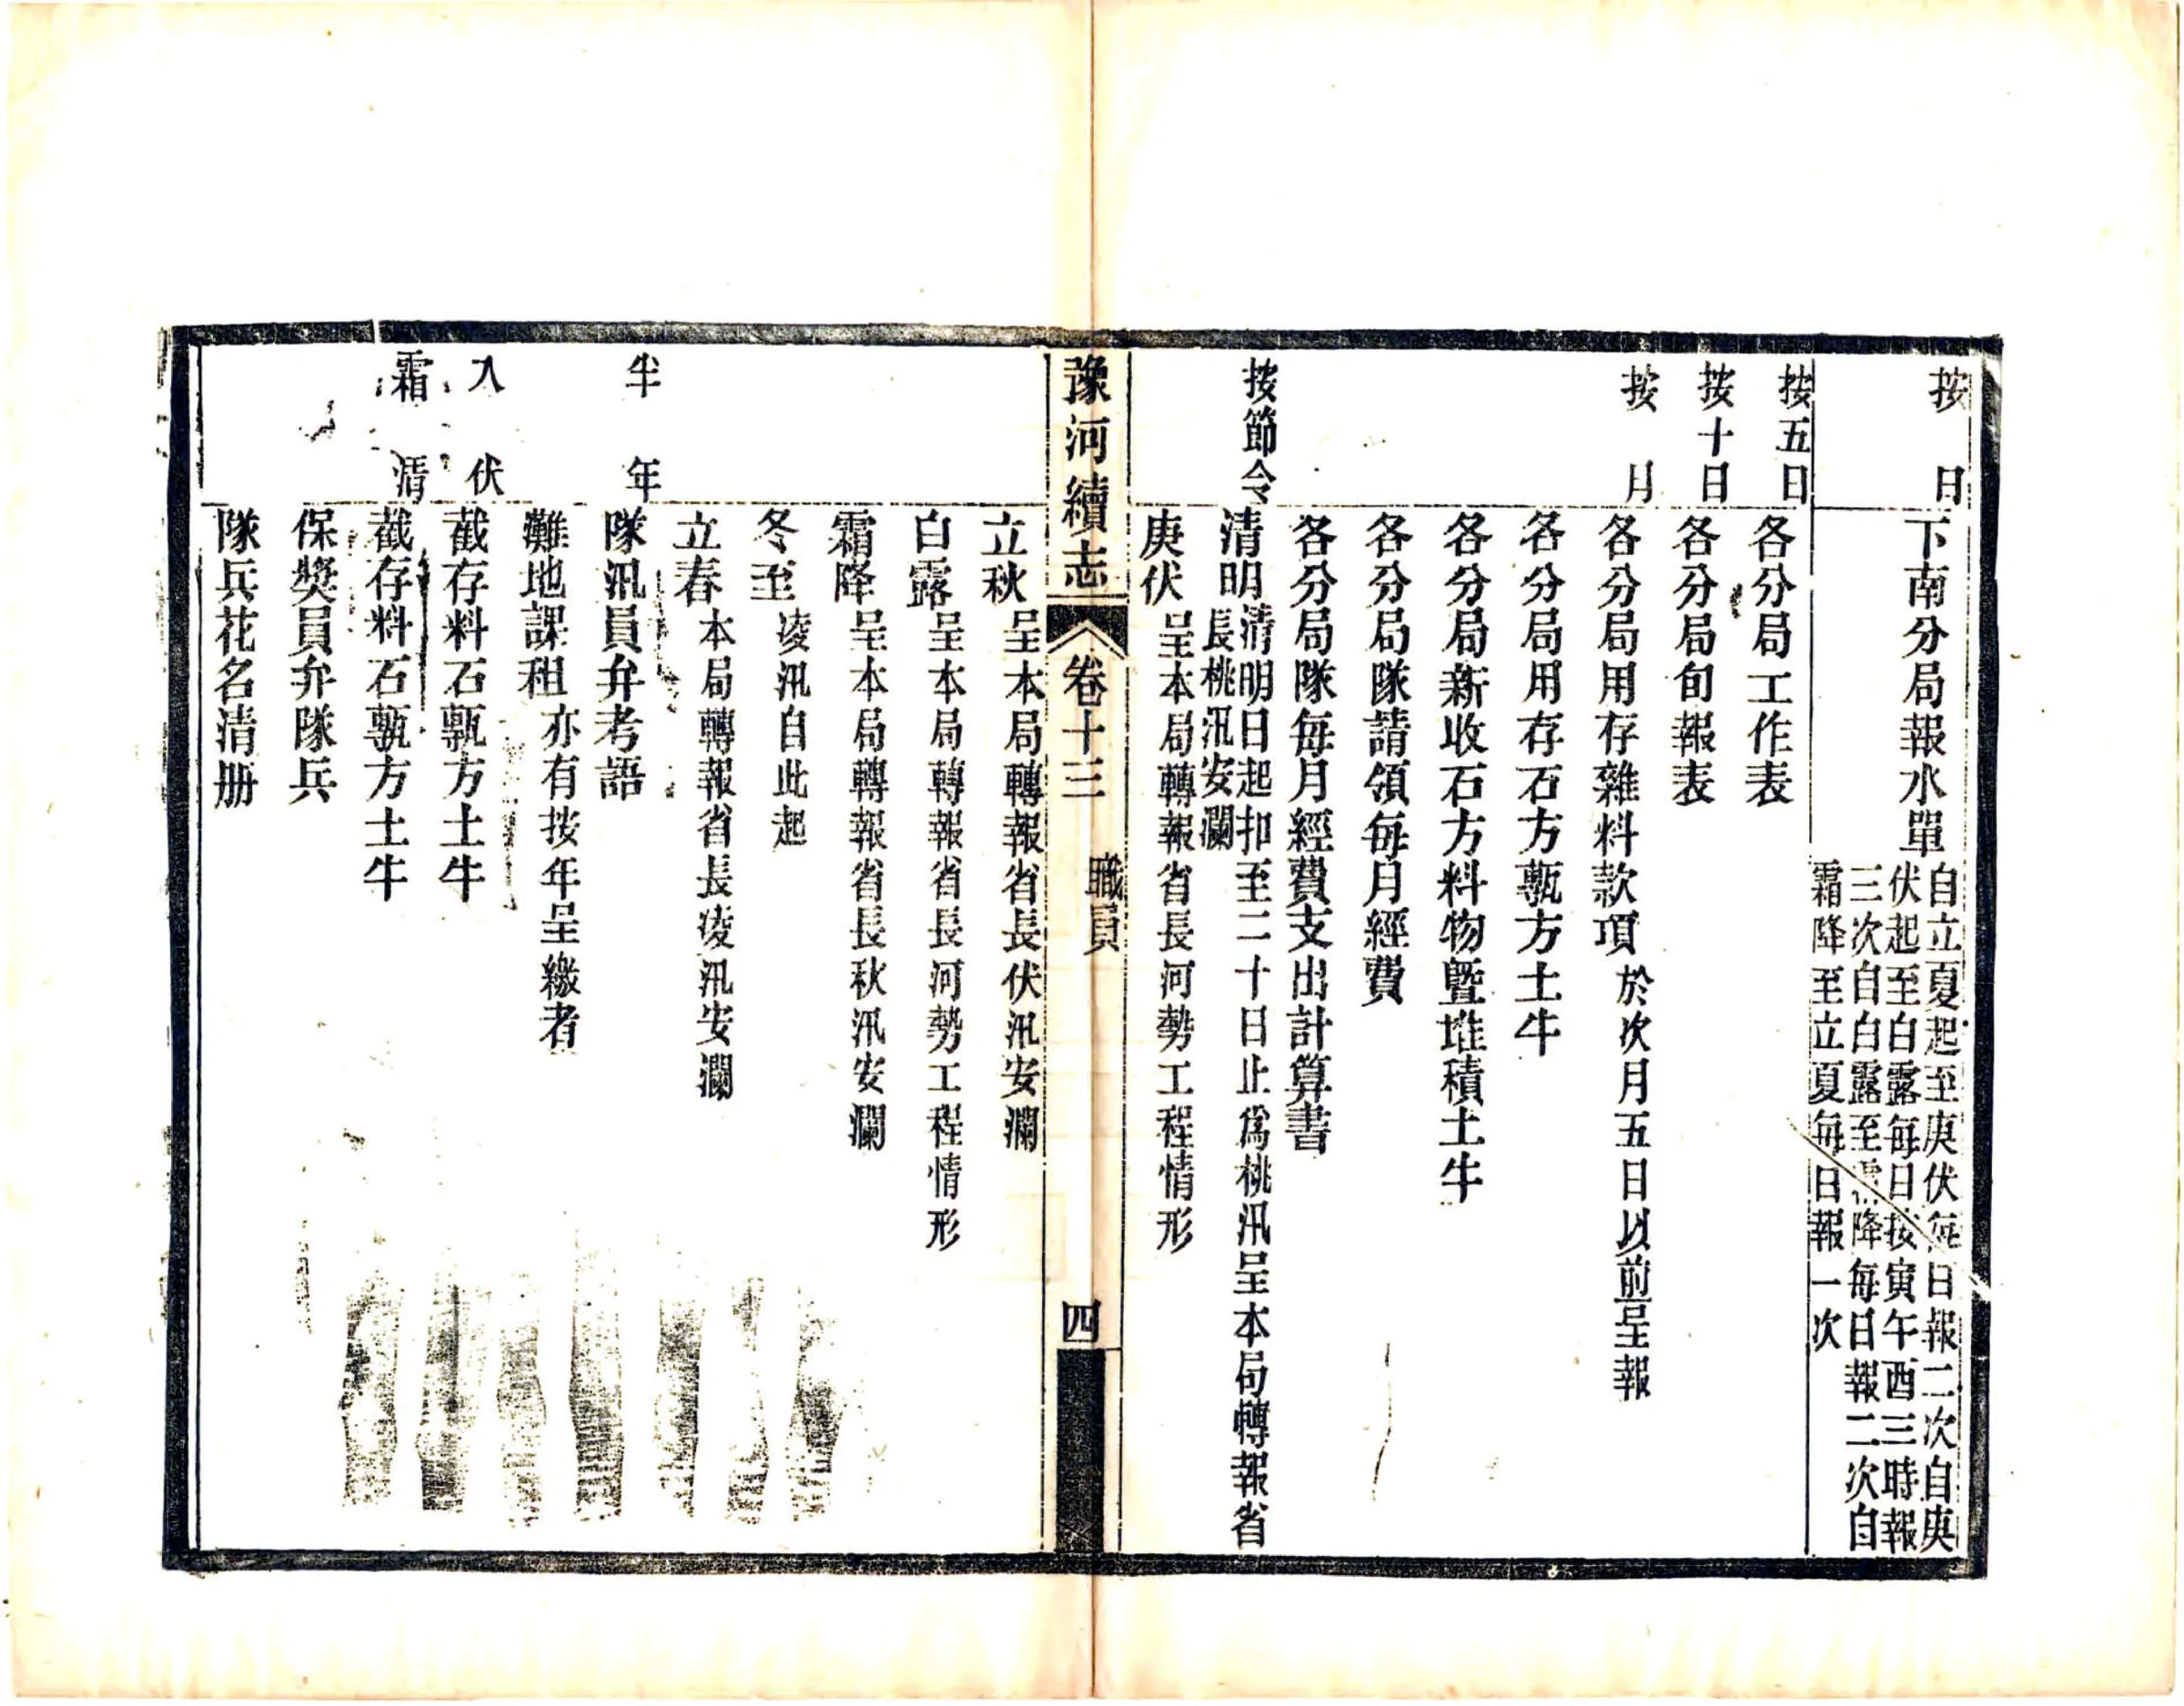 按日
下南分局報水單
自立夏起至庚伏每日報二次自庚
伏起至白露每日按寅午酉三時報
三次自白露至霜降每日報二次自
霜降至立夏每日報一次
按五日
各分局工作表
按十日
各分局旬報表
按月
各分局用存雜料款項
於次月五日以前呈報
各分局用存石方甎方土牛
各分局新收石方料物暨堆積土牛
各分局隊請領每月經費
各分局隊每月經費支出計算書
按節令
清明
清明日起扣至二十日止爲桃汛呈本局轉報省
長桃汛安瀾
庚伏
呈本局轉報省長河勢工程情形
豫河續志
卷十三
職員
四
立秋
呈本局轉報省長伏汛安瀾
白露
呈本局轉報省長河勢工程情形
霜降
呈本局轉報省長秋汛安瀾
冬至
凌汛自此起
立春
本局轉報省長凌汛安瀾
半年
隊汛員弁考語
灘地課租
亦有按年呈繳者
入伏
截存料石甎方土牛
霜清
截存料石甎方土牛
保獎員弁隊兵
隊兵花名清册